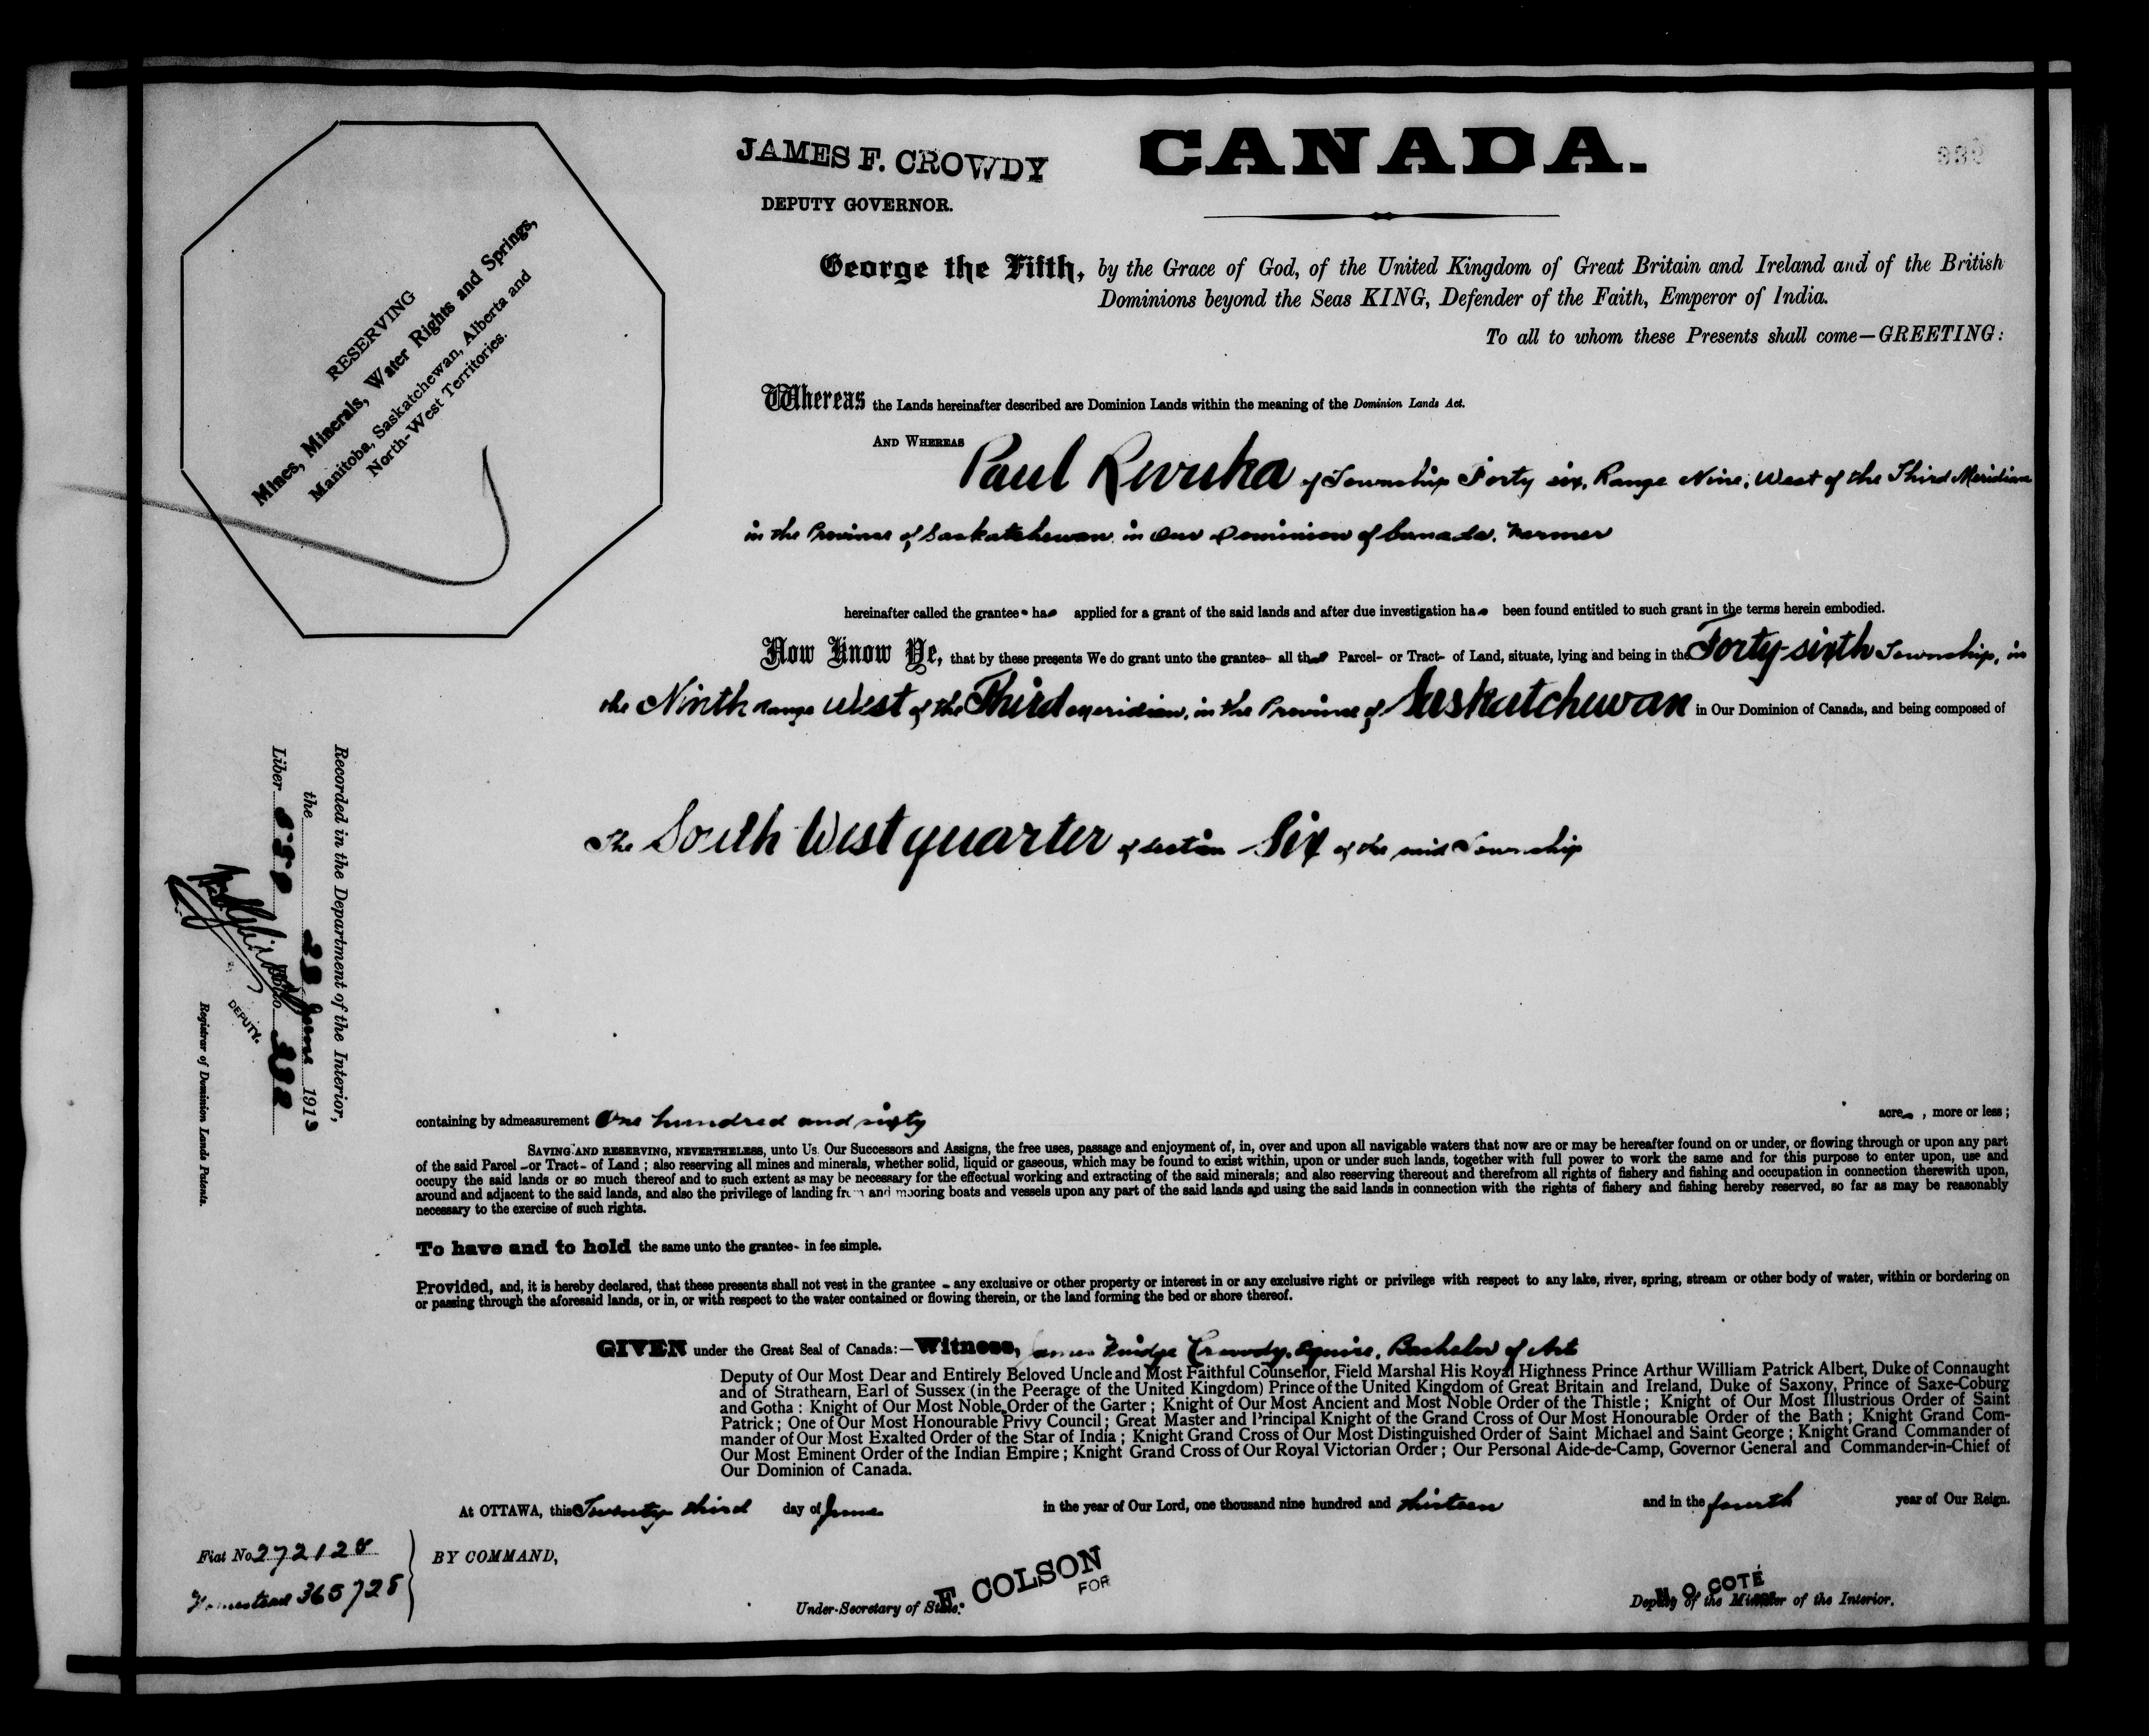 JAMES F. CROWDY
DEPUTY GOVERNOR.
CANADA.
RESERVING
Mines, Minerals, Water Rights and Springs,
Manitoba, Saskatchewan, Alberta and
North-West Territories.
George the Fifth, by the Grace of God, of the United Kingdom of Great Britain and Ireland and of the British
Dominions beyond the Seas KING, Defender of the Faith, Emperor of India.
To all to whom these Presents shall come—GREETING:
Whereas the Lands hereinafter described are Dominion Lands within the meaning of the Dominion Lands Act.
AND WHEREAS
Paul of Township Forty six, Range Nine, West of the Third Meridian
in the Province of Saskatchewan, in Our Dominion of Canada, Farmer
hereinafter called the grantee has applied for a grant of the said lands and after due investigation has been found entitled to such grant in the terms herein embodied.
Now Know Ye, that by these presents We do grant unto the grantee all that Parcel or Tract of Land, situate, lying and being in the Forty-sixth Township, in
the Ninth range West of the Third meridian, in the Province of Saskatchewan in Our Dominion of Canada, and being composed of
The South West quarter of section Six of the said Township
Recorded in the Department of the Interior,
the 28 June 1913
Liber Folio 332
DEPUTY.
Registrar of Dominion Lands Patents.
containing by admeasurement One hundred and sixty acres, more or less;
SAVING AND RESERVING, NEVERTHELESS, unto Us, Our Successors and Assigns, the free uses, passage and enjoyment of, in, over and upon all navigable waters that now are or may be hereafter found on or under, or flowing through or upon any part
of the said Parcel or Tract of Land; also reserving all mines and minerals, whether solid, liquid or gaseous, which may be found to exist within, upon or under such lands, together with full power to work the same and for this purpose to enter upon, use and
occupy the said lands or so much thereof and to such extent as may be necessary for the effectual working and extracting of the said minerals; and also reserving thereout and therefrom all rights of fishery and fishing and occupation in connection therewith upon,
around and adjacent to the said lands, and also the privilege of landing from and mooring boats and vessels upon any part of the said lands and using the said lands in connection with the rights of fishery and fishing hereby reserved, so far as may be reasonably
necessary to the exercise of such rights.
To have and to hold the same unto the grantee in fee simple.
Provided, and, it is hereby declared, that these presents shall not vest in the grantee any exclusive or other property or interest in or any exclusive right or privilege with respect to any lake, river, spring, stream or other body of water, within or bordering on
or passing through the aforesaid lands, or in, or with respect to the water contained or flowing therein, or the land forming the bed or shore thereof.
GIVEN under the Great Seal of Canada:—Witness, James Fuidge Crowdy, Esquire, Bachelor of Art
Deputy of Our Most Dear and Entirely Beloved Uncle and Most Faithful Counsellor, Field Marshal His Royal Highness Prince Arthur William Patrick Albert, Duke of Connaught
and of Strathearn, Earl of Sussex (in the Peerage of the United Kingdom) Prince of the United Kingdom of Great Britain and Ireland, Duke of Saxony, Prince of Saxe-Coburg
and Gotha: Knight of Our Most Noble Order of the Garter; Knight of Our Most Ancient and Most Noble Order of the Thistle; Knight of Our Most Illustrious Order of Saint
Patrick; One of Our Most Honourable Privy Council; Great Master and Principal Knight of the Grand Cross of Our Most Honourable Order of the Bath; Knight Grand Com-
mander of Our Most Exalted Order of the Star of India; Knight Grand Cross of Our Most Distinguished Order of Saint Michael and Saint George; Knight Grand Commander of
Our Most Eminent Order of the Indian Empire; Knight Grand Cross of Our Royal Victorian Order; Our Personal Aide-de-Camp, Governor General and Commander-in-Chief of
Our Dominion of Canada.
At OTTAWA, this Twenty third day of June in the year of Our Lord, one thousand nine hundred and thirteen and in the fourth year of Our Reign.
Fiat No. 272128
Homestead 365728
BY COMMAND,
F. COLSON
FOR
Under-Secretary of State.
N. O. COTÉ
Deputy of the Minister of the Interior.